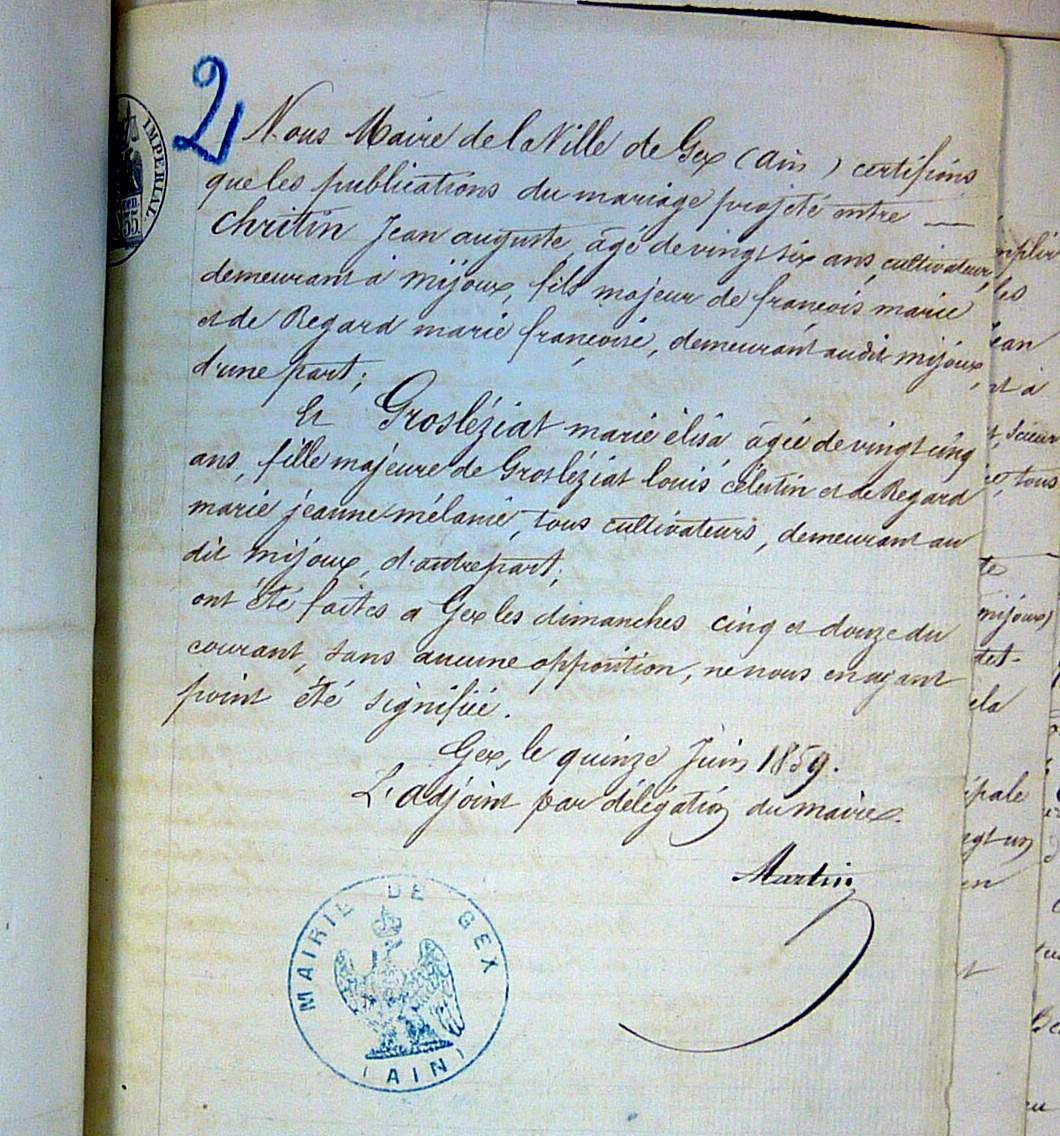 2
IMPERIAL.
55
Nous Maire de la Ville de Gex (Ain) certifions
que les publications du mariage projeté entre —
Chritin Jean auguste, âgé de vingt six ans, cultivateur,
demeurant à Mijoux, fils majeur de françois marie
et de Regard marie françoise, demeurant audit mijoux,
d'une part;
Et Grosléziat marie élisa âgée de vingt cinq
ans, fille majeure de Grosléziat louis célestin et de Regard
marie jeanne mélanie, tous cultivateurs, demeurant au
dit mijoux, d'autre part;
ont été faites a Gex les dimanches cinq et douze du
courant, sans aucune opposition, ne nous en ayant
point été signifiée.
Gex, le quinze Juin 1859.
L'adjoint par délégation du maire.
Martin
MAIRIE DE GEX
(AIN)
mplir
les
Jean
nt à
scieur
tous
te
mijoux)
det-
ela
ipale
gt un
en